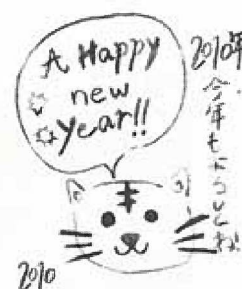 A Happy
new
Year!!
2010年
今年もよろしくね!
2010